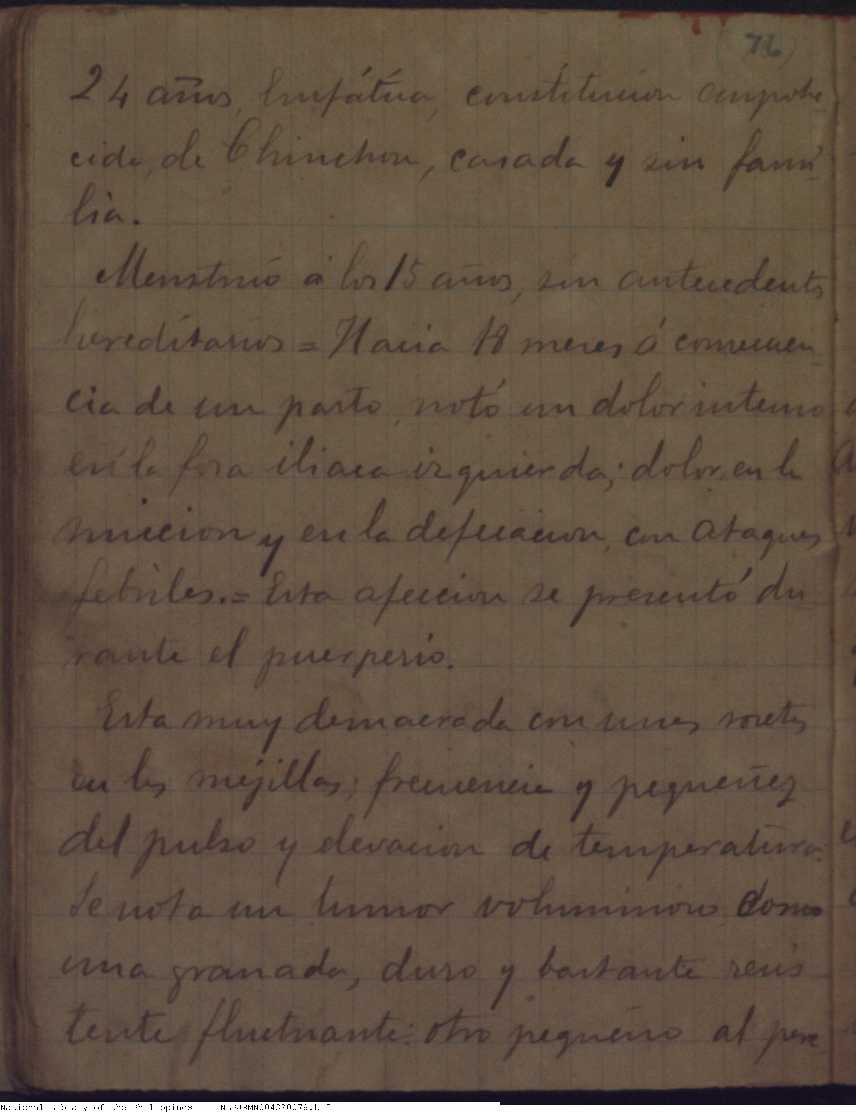 76
24 años, linfática, constitucion empobre
cida, de Chinchon, casada y sin fami-
lia.
Menstruó á los 15 años, sin antecedents
hereditarios = Hacia 18 meses á consecuen-
cia de un parto, notó un dolor intenso
en la fosa iliaca izquierda; dolor en la
miccion y en la defecacion, con ataques
febriles. = Esta afeccion se presentó du
rante el puerperio.
Esta muy demacrada con unas rosetas
en las mejillas; frecuencia y pequeñez
del pulso y elevacion de temperatura.
Se nota un tumor voluminoso como
una granada, duro y bastante resis
tente fluctuante: otro pequeño al
National Library of the Philippines